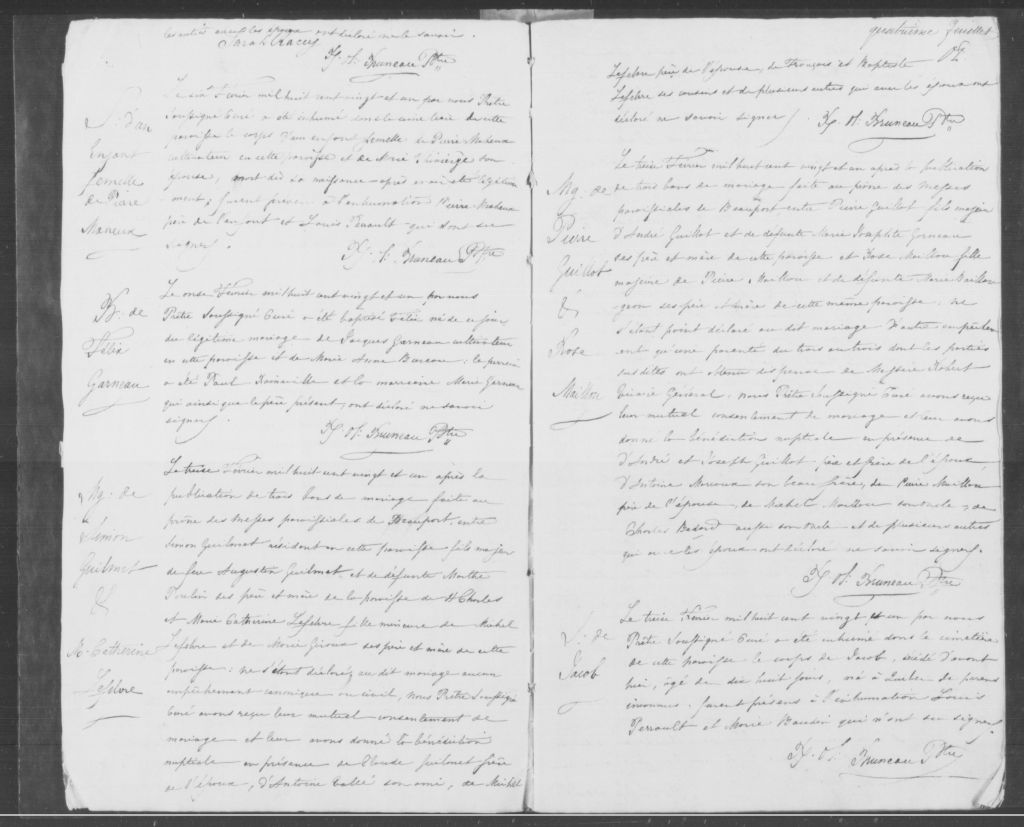 les autres aussi les époux ont déclaré ne le savoir.
Sarah Tracey
F. H. Bruneau Ptre
S. d'un
Enfant
femelle
de Piere
Maheux
Le six Fevrier mil huit cent vingt et un par nous Prêtre
soussigné Curé a été inhumé dans le cimetière de cette
paroisse le corps d'un enfant femelle de Pierre Maheux
cultivateur en cette paroisse et de Marie son
épouse, mort dès sa naissance après avoir été
; furent présens à l'inhumation Pierre Maheux
père de l'enfant et Louis Penault qui n'ont su
signer.
F. H. Bruneau Ptre
B. de
Félix
Garneau
Le onze Fevrier mil huit cent vingt et un par nous
Prêtre soussigné Curé a été baptisé Félix né de ce jour
du légitime mariage de Jacques Garneau cultivateur
en cette paroisse et de Marie Anne Bureau : le parrein
a été Paul Rainville et la marraine Marie Garneau
qui ainsi que le père présent, ont déclaré ne savoir
signer
F. H. Bruneau Ptre
Mg. de
Simon
Guilmet
&
M. Catherine
Lefebvre
Le treize Fevrier mil huit cent vingt et un après la
publication de trois bans de mariage faite au
prône des Messes paroissiales de Beauport, entre
Simon Guilmet résidant en cette paroisse fils majeur
de feu Augustin Guilmet et de défunte Marthe
Poulin des père et mère de la paroisse de St Charles
et Marie Catherine Lefebre fille mineure de Michel
Lefebre et de Marie Giroux ses père et mère de cette
paroisse : ne s'étant déclaré au dit mariage aucun
empêchement canonique ou civil, nous Prêtre soussigné
Curé avons reçu leur mutuel consentement de
mariage et leur avons donné la bénédiction
nuptiale en présence de Claude Guilmet frère
de l'époux, d'Antoine Vallé son ami, de Michel
quatrieme feuillet
Lefebre père de l'épouse, de François et Baptiste
Lefebre ses cousins et de plusieurs autres qui avec les époux ont
déclaré ne savoir signer.
F. H. Bruneau Ptre
Mg. de
Pierre
Guillot
&
Rose
Maillou
Le treize Fevrier mil huit cent vingt et un après la publication
de trois bans de mariage faite au prône des Messes
paroissiales de Beauport entre Pierre Guillot fils majeur
d'André Guillot et de défunte Marie Josephte Garneau
ses père et mère de cette paroisse et Rose Maillou fille
majeure de Pierre Maillou et de défunte Marie
ses père et mère de cette même paroisse ; ne
s'étant point déclaré au dit mariage d'autre empêche-
ment qu'une parenté du trois au trois dont les parties
susdites ont obtenu dispense de Messire Robert
Vicaire Général, nous Prêtre soussigné Curé avons reçu
leur mutuel consentement de mariage et leur avons
donné la bénédiction nuptiale en présence de
d'André et Joseph Guillot, père et frère de l'époux,
d'Antoine son beau frère, de Pierre Maillou
père de l'épouse, de Michel Maillou son oncle, de
Charles Bedard aussi son oncle et de plusieurs autres
qui avec les époux ont déclaré ne savoir signer.
F. H. Bruneau Ptre
S. de
Jacob
Le treize Fevrier mil huit cent vingt et un par nous
Prêtre soussigné Curé a été inhumé dans le cimetière
de cette paroisse le corps de Jacob, décédé d'avant
hier, âgé de dix huit jours, né à Quebec de parens
inconnus. furent présens à l'inhumation Louis
Perrault et Marie Baudin qui n'ont su signer
F. H. Bruneau Ptre